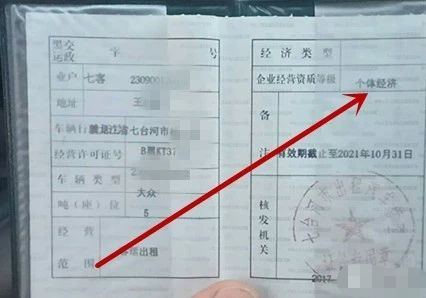 黑交运政 字 号
业户 七客 230900
地址 王
车辆 黑龙江省七台河市
经营许可证号 B黑KT37
车辆类型 2
大众
吨(座)位 5
经营范围 客运出租
经济类型
企业经营资质等级 个体经济
备注 有效期截止至2021年10月31日
核发机关 七台河市出租汽车
2017